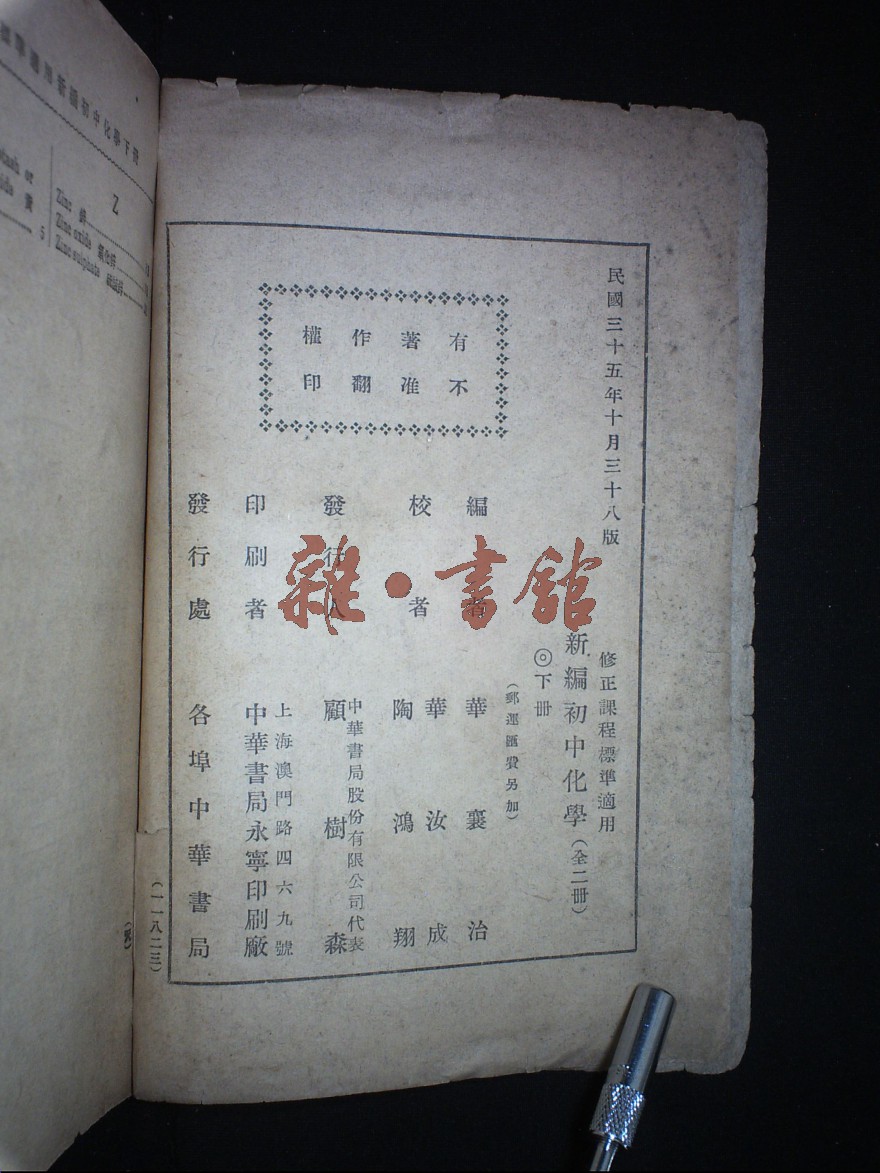 民國三十五年十月三十八版
修正課程標準適用
新編初中化學(全二冊)
◎下冊
(郵運匯費另加)
有著作權
不准翻印
編者 華襄治
校者 華汝成
陶鴻翔
發行人 中華書局股份有限公司代表
顧樹森
印刷者 上海澳門路四六九號
中華書局永寧印刷廠
發行處 各埠中華書局
(一一八二三)
初中化學下冊
Z
Zinc 鋅
Zinc oxide 氧化鋅
Zinc sulphate 硫酸鋅
5
雜·書館